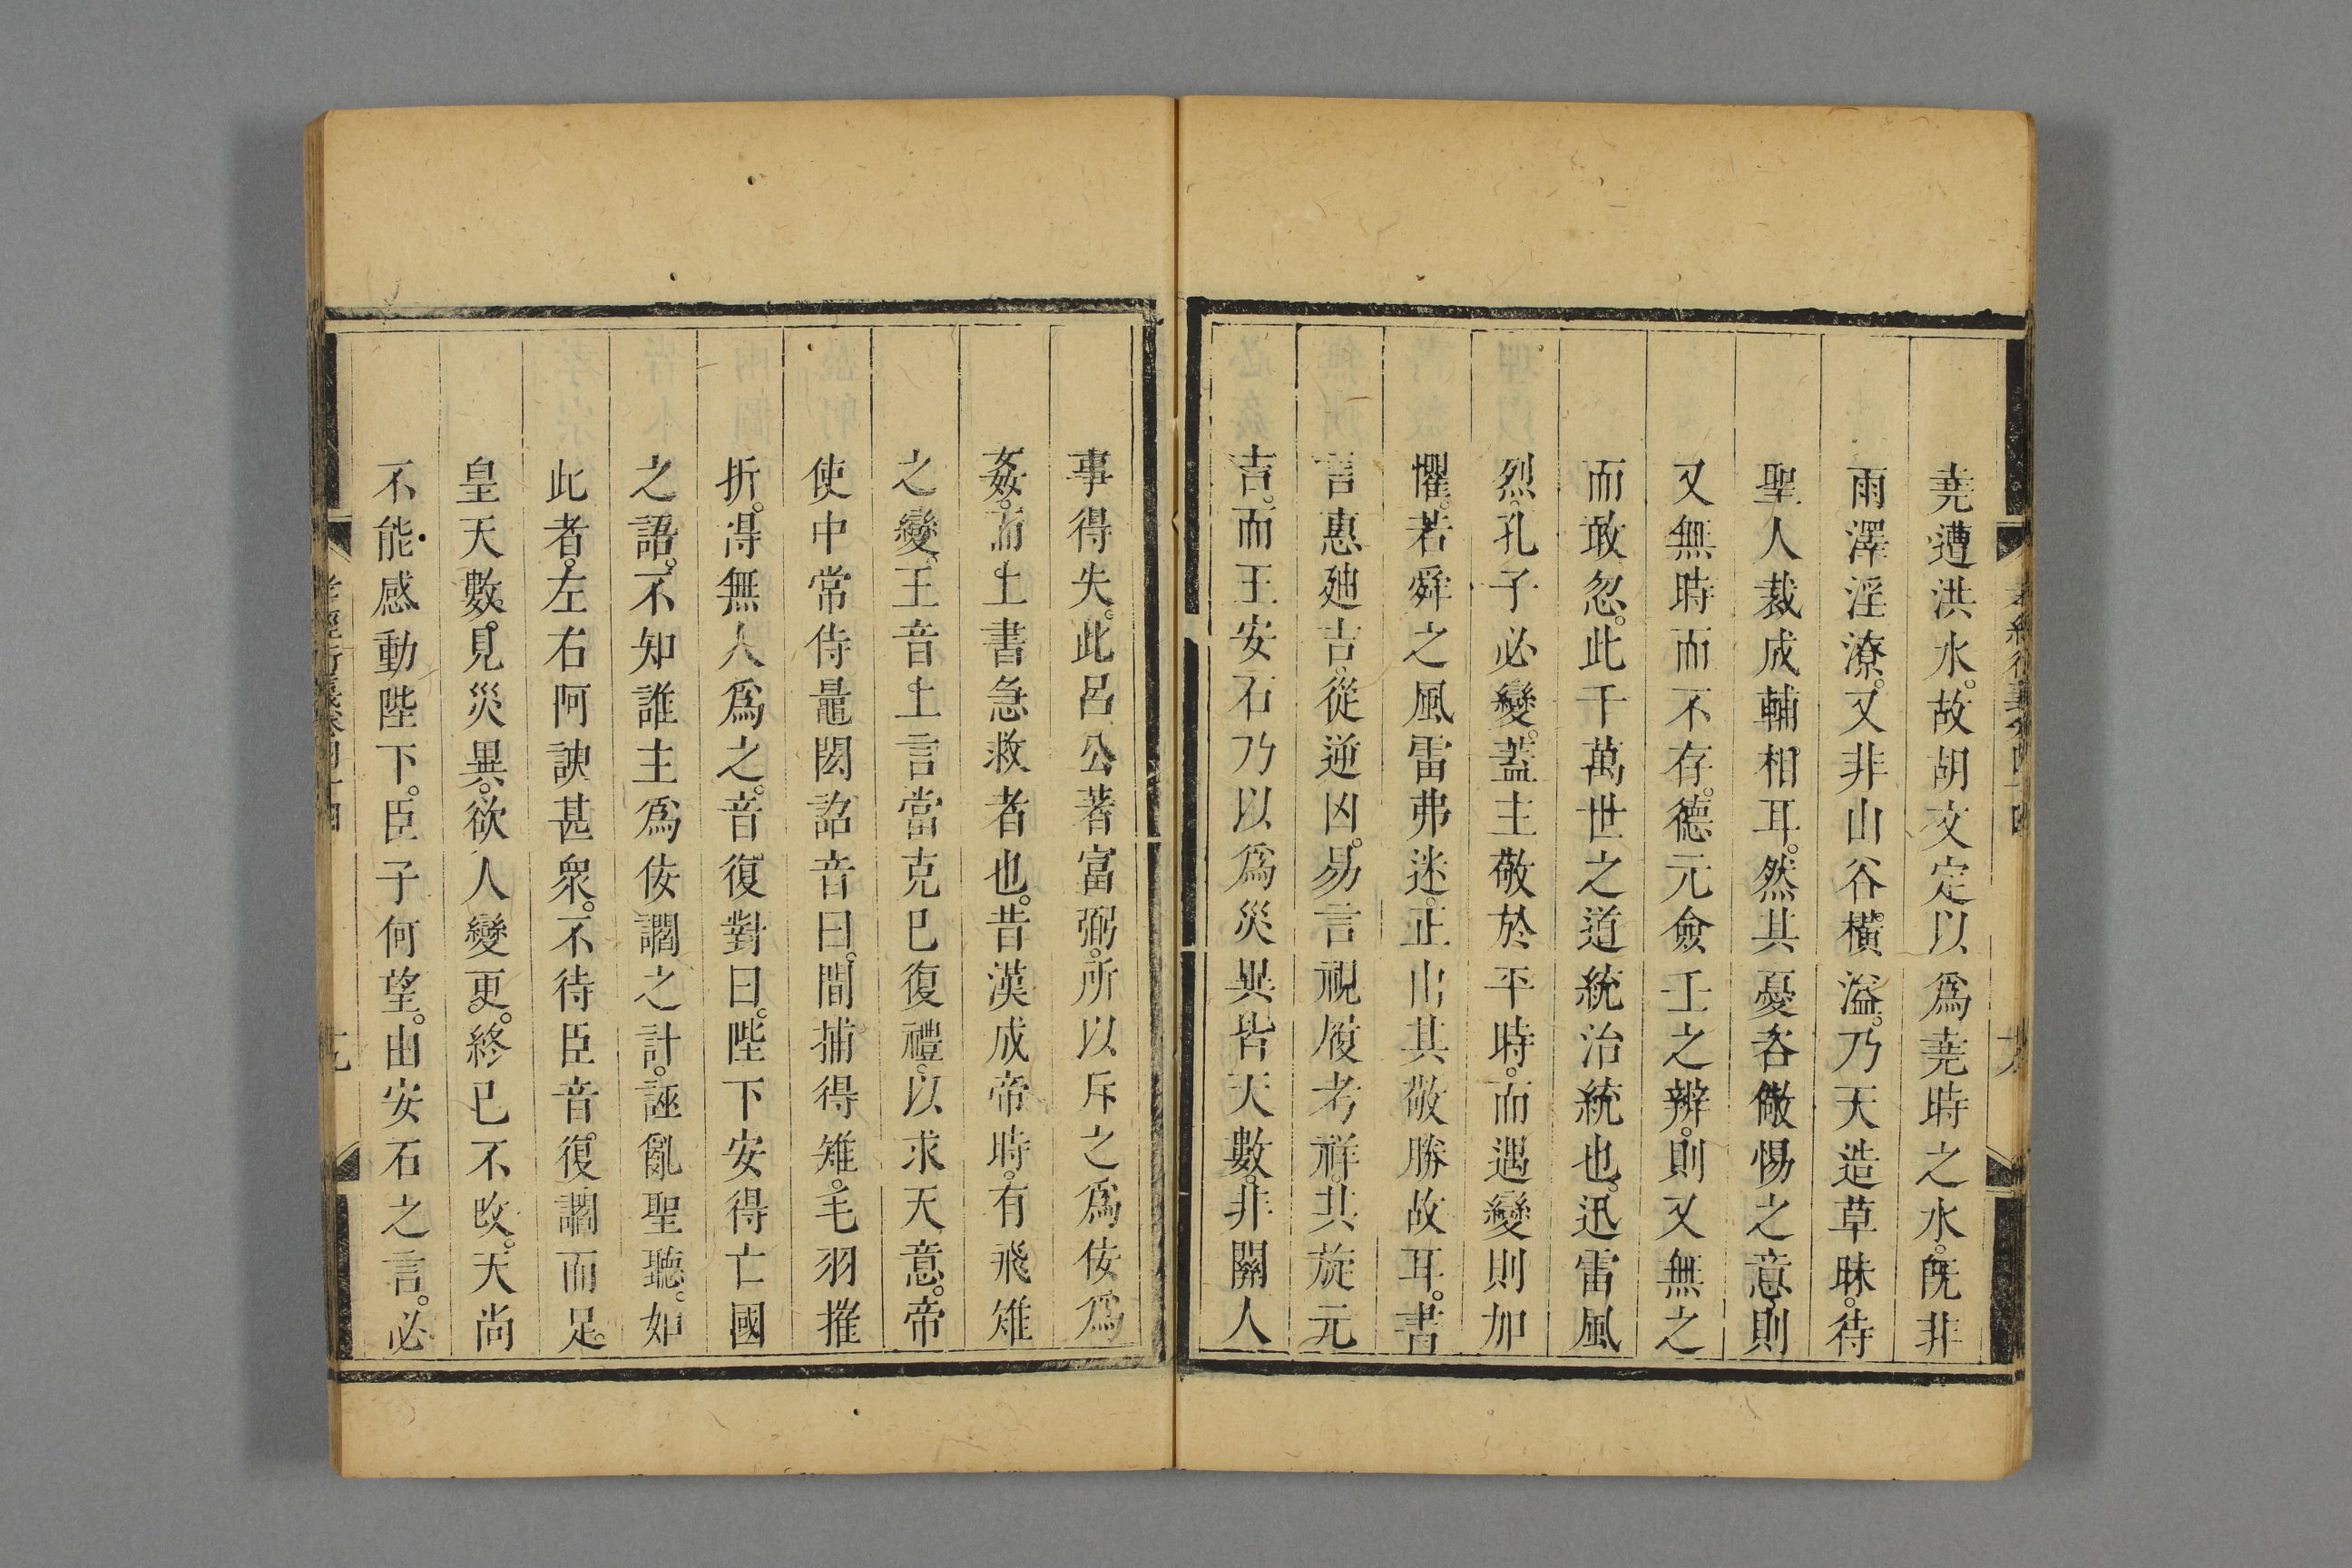 堯遭洪水。故胡文定以爲堯時之水。旣非
雨澤淫潦。又非山谷橫溢。乃天造草昧。待
聖人裁成輔相耳。然其憂咨儆惕之意。則
又無時而不存。德元僉壬之辨。則又無之
而敢忽。此千萬世之道統治統也。迅雷風
烈。孔子必變。蓋主敬於平時。而遇變則加
懼。若舜之風雷弗迷。正由其敬勝故耳。書
言惠廸吉。從逆凶。易言視履考祥。其旋元
吉。而王安石乃以爲災異皆天數。非關人
事得失。此呂公著富弼。所以斥之爲佞爲
姦。而上書急救者也。昔漢成帝時。有飛雉
之變。王音上言當克己復禮。以求天意。帝
使中常侍鼂閎詔音曰。間捕得雉。毛羽摧
折。得無人爲之。音復對曰。陛下安得亡國
之語。不知誰主爲佞讇之計。誣亂聖聽。如
此者。左右阿諛甚衆。不待臣音。復讇而足。
皇天數見災異。欲人變更。終已不改。天尚
不能感動陛下。臣子何望。由安石之言。必